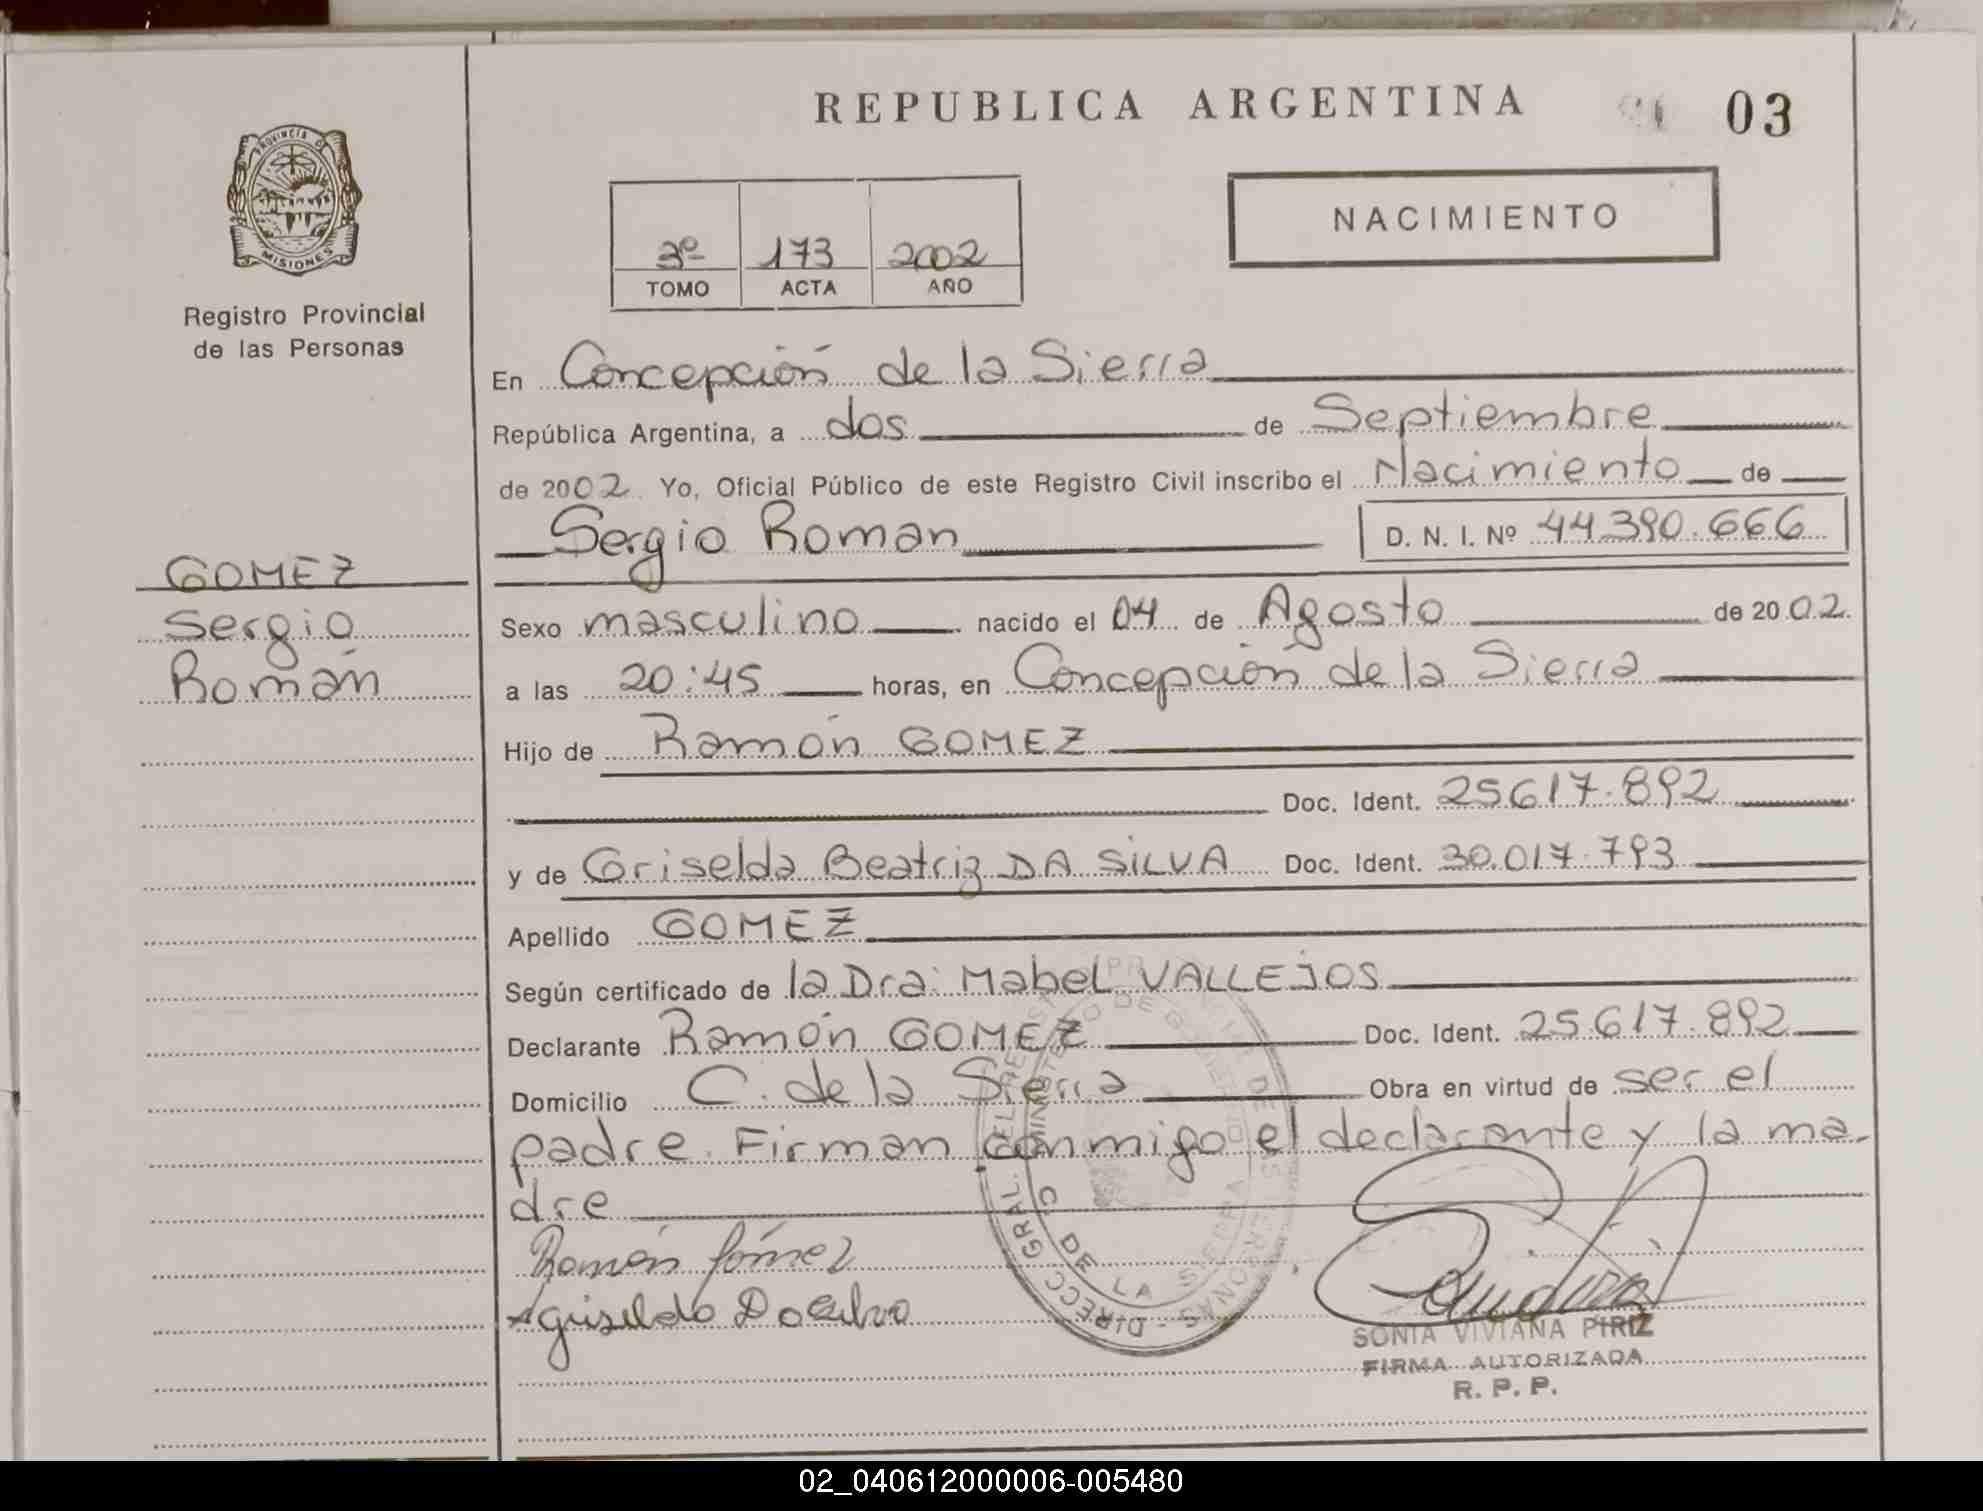 REPUBLICA ARGENTINA 03
PROVINCIA DE
MISIONES
Registro Provincial
de las Personas
NACIMIENTO
3º 173 2002
TOMO ACTA AÑO
En Concepción de la Sierra
República Argentina, a dos de Septiembre
de 2002 Yo, Oficial Público de este Registro Civil inscribo el Nacimiento de
Sergio Roman D. N. I. Nº 44.390.666
GOMEZ
Sergio
Román
Sexo masculino nacido el 04 de Agosto de 2002.
a las 20:45 horas, en Concepción de la Sierra
Hijo de Ramón GOMEZ
Doc. Ident. 25617.892
y de Griselda Beatriz DA SILVA Doc. Ident. 30.017.793
Apellido GOMEZ
Según certificado de la Dra: Mabel VALLEJOS
Declarante Ramón GOMEZ Doc. Ident. 25.617.892
Domicilio C. de la Sierra Obra en virtud de ser el
padre. Firman conmigo el declarante y la ma-
dre
Ramón Gómez
SONIA VIVIANA PIRIZ
FIRMA AUTORIZADA
R. P. P.
C. DE LA SIERRA
02_040612000006-005480